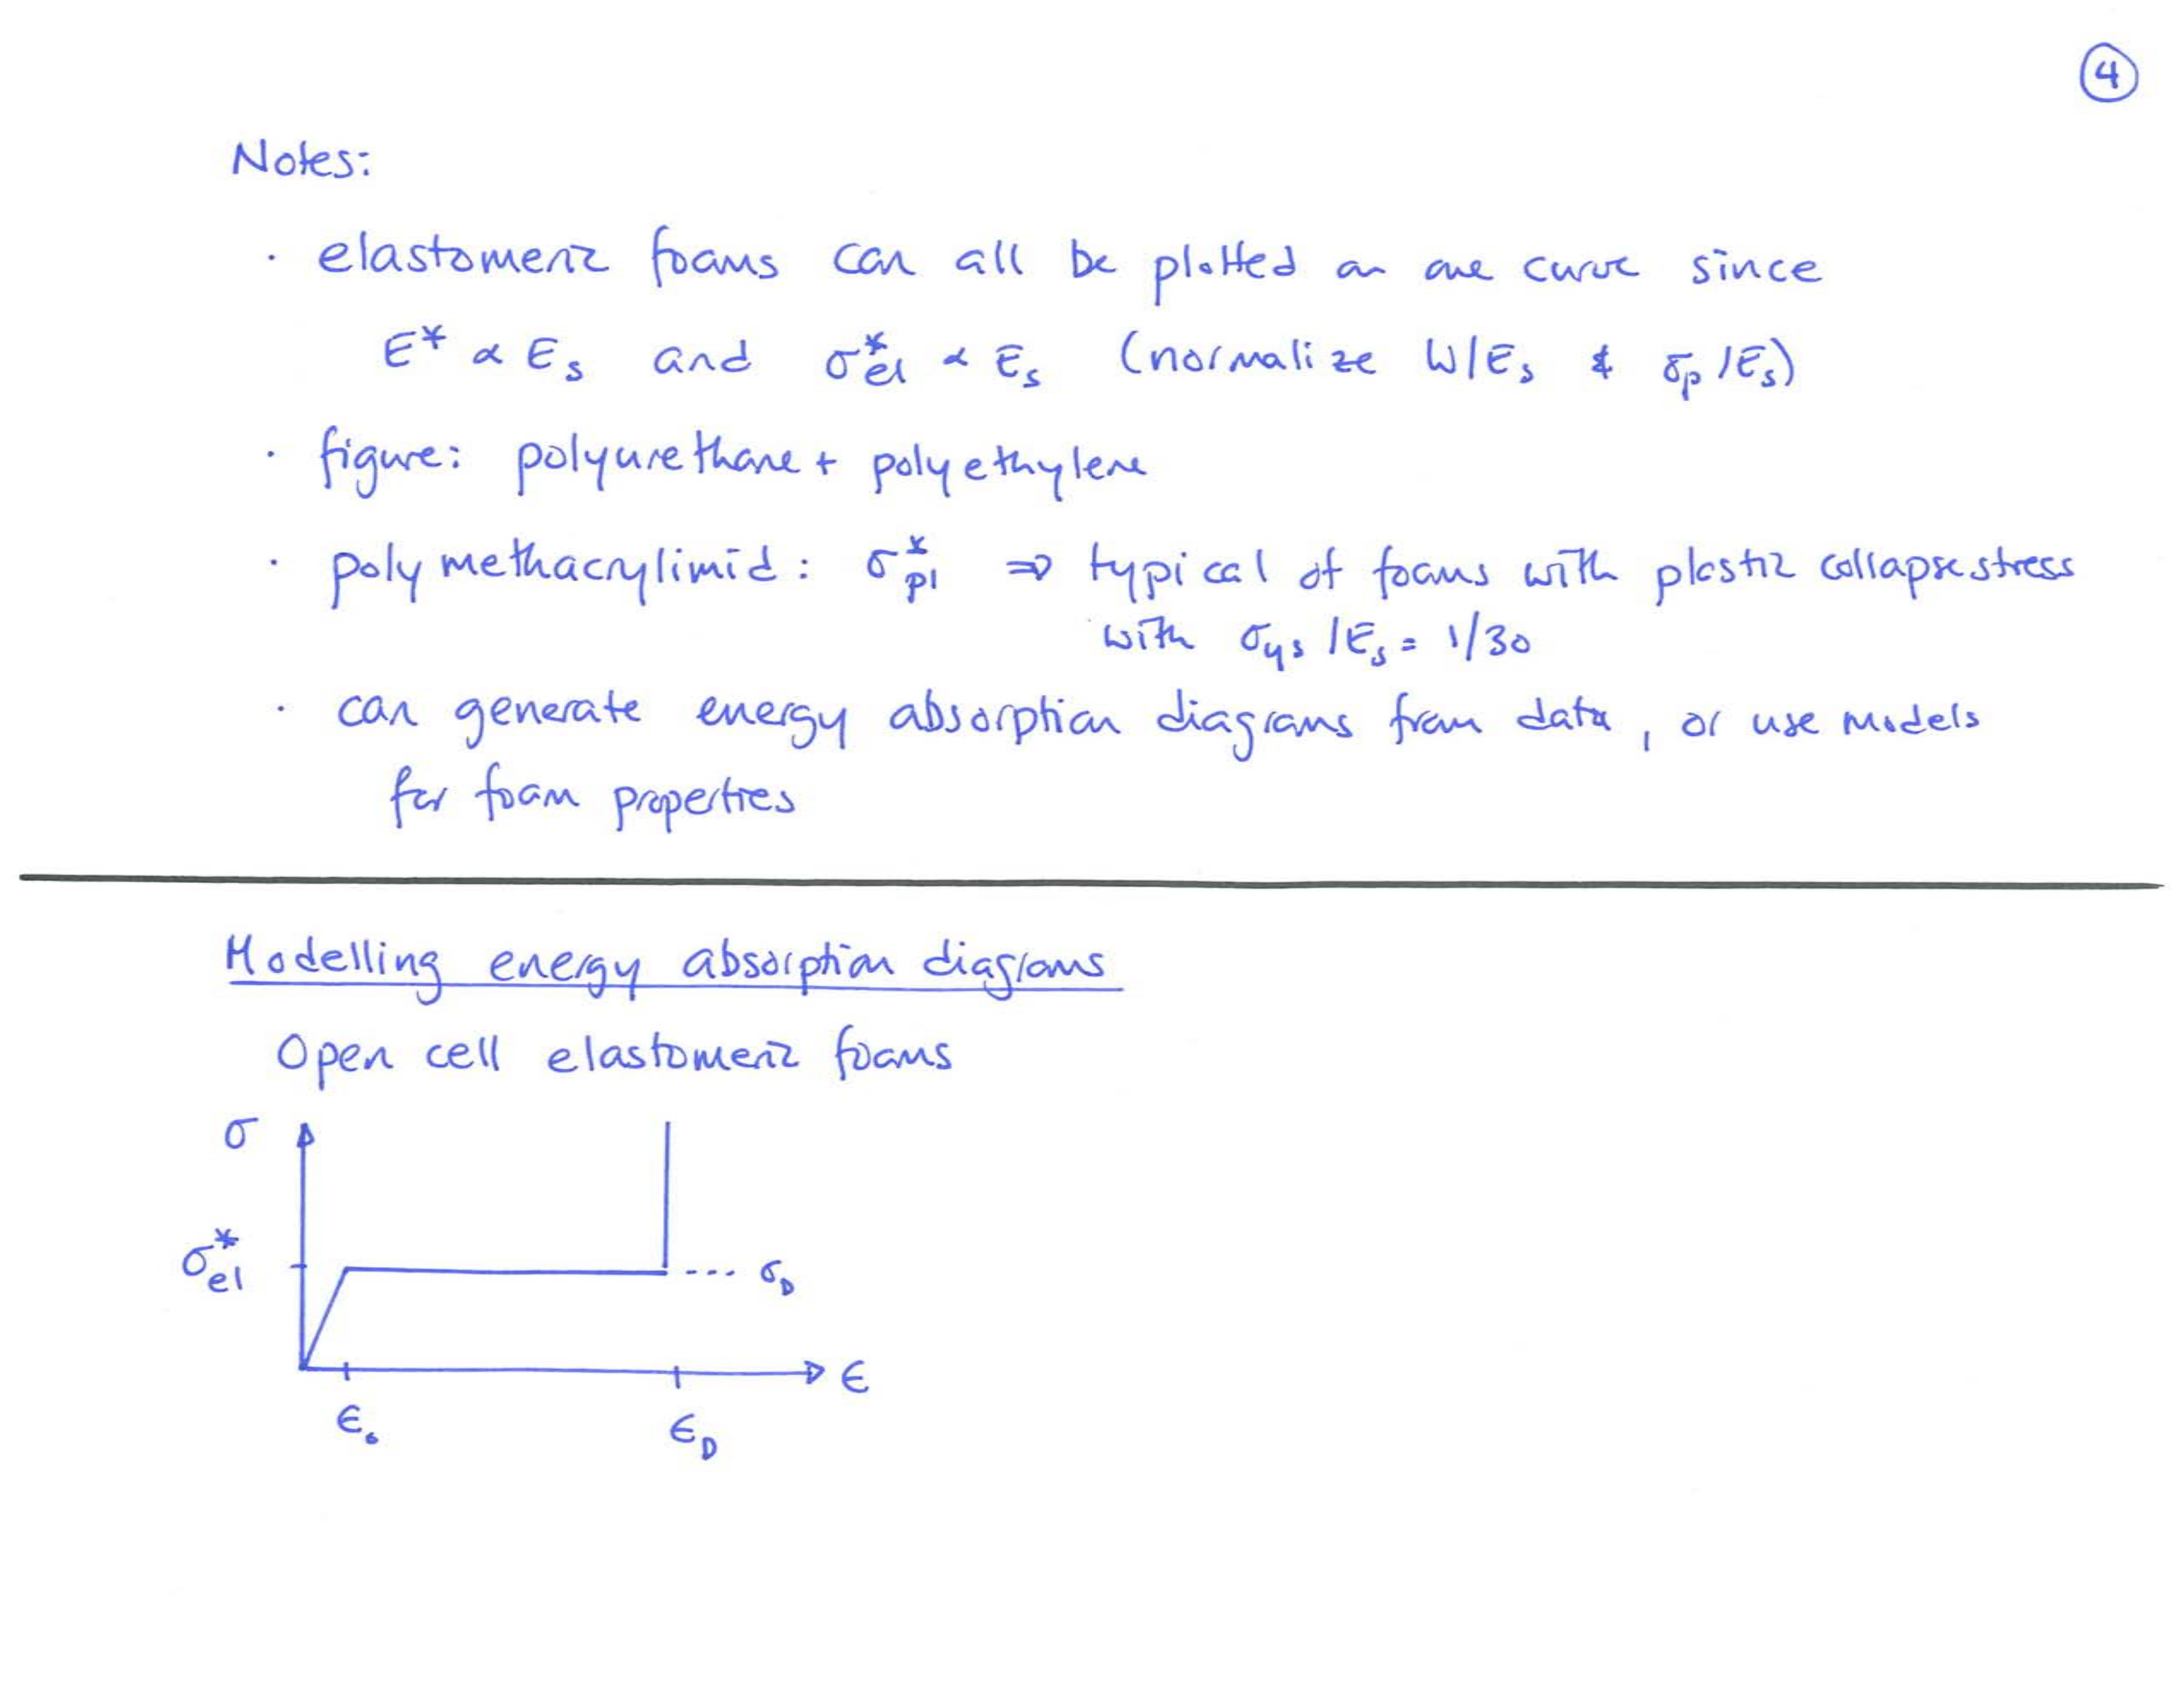 4
Notes:
· elastomeric foams can all be plotted on one curve since
E* ∝ Es and σ*el ∝ Es (normalize W/Es & σp/Es)
· figure: polyurethane + polyethylene
· polymethacrylimid: σ*pl ⇒ typical of foams with plastic collapse stress
with σys/Es = 1/30
· can generate energy absorption diagrams from data, or use models
for foam properties
Modelling energy absorption diagrams
Open cell elastomeric foams
σ
σ*el
σD
ε
ε₀
εD